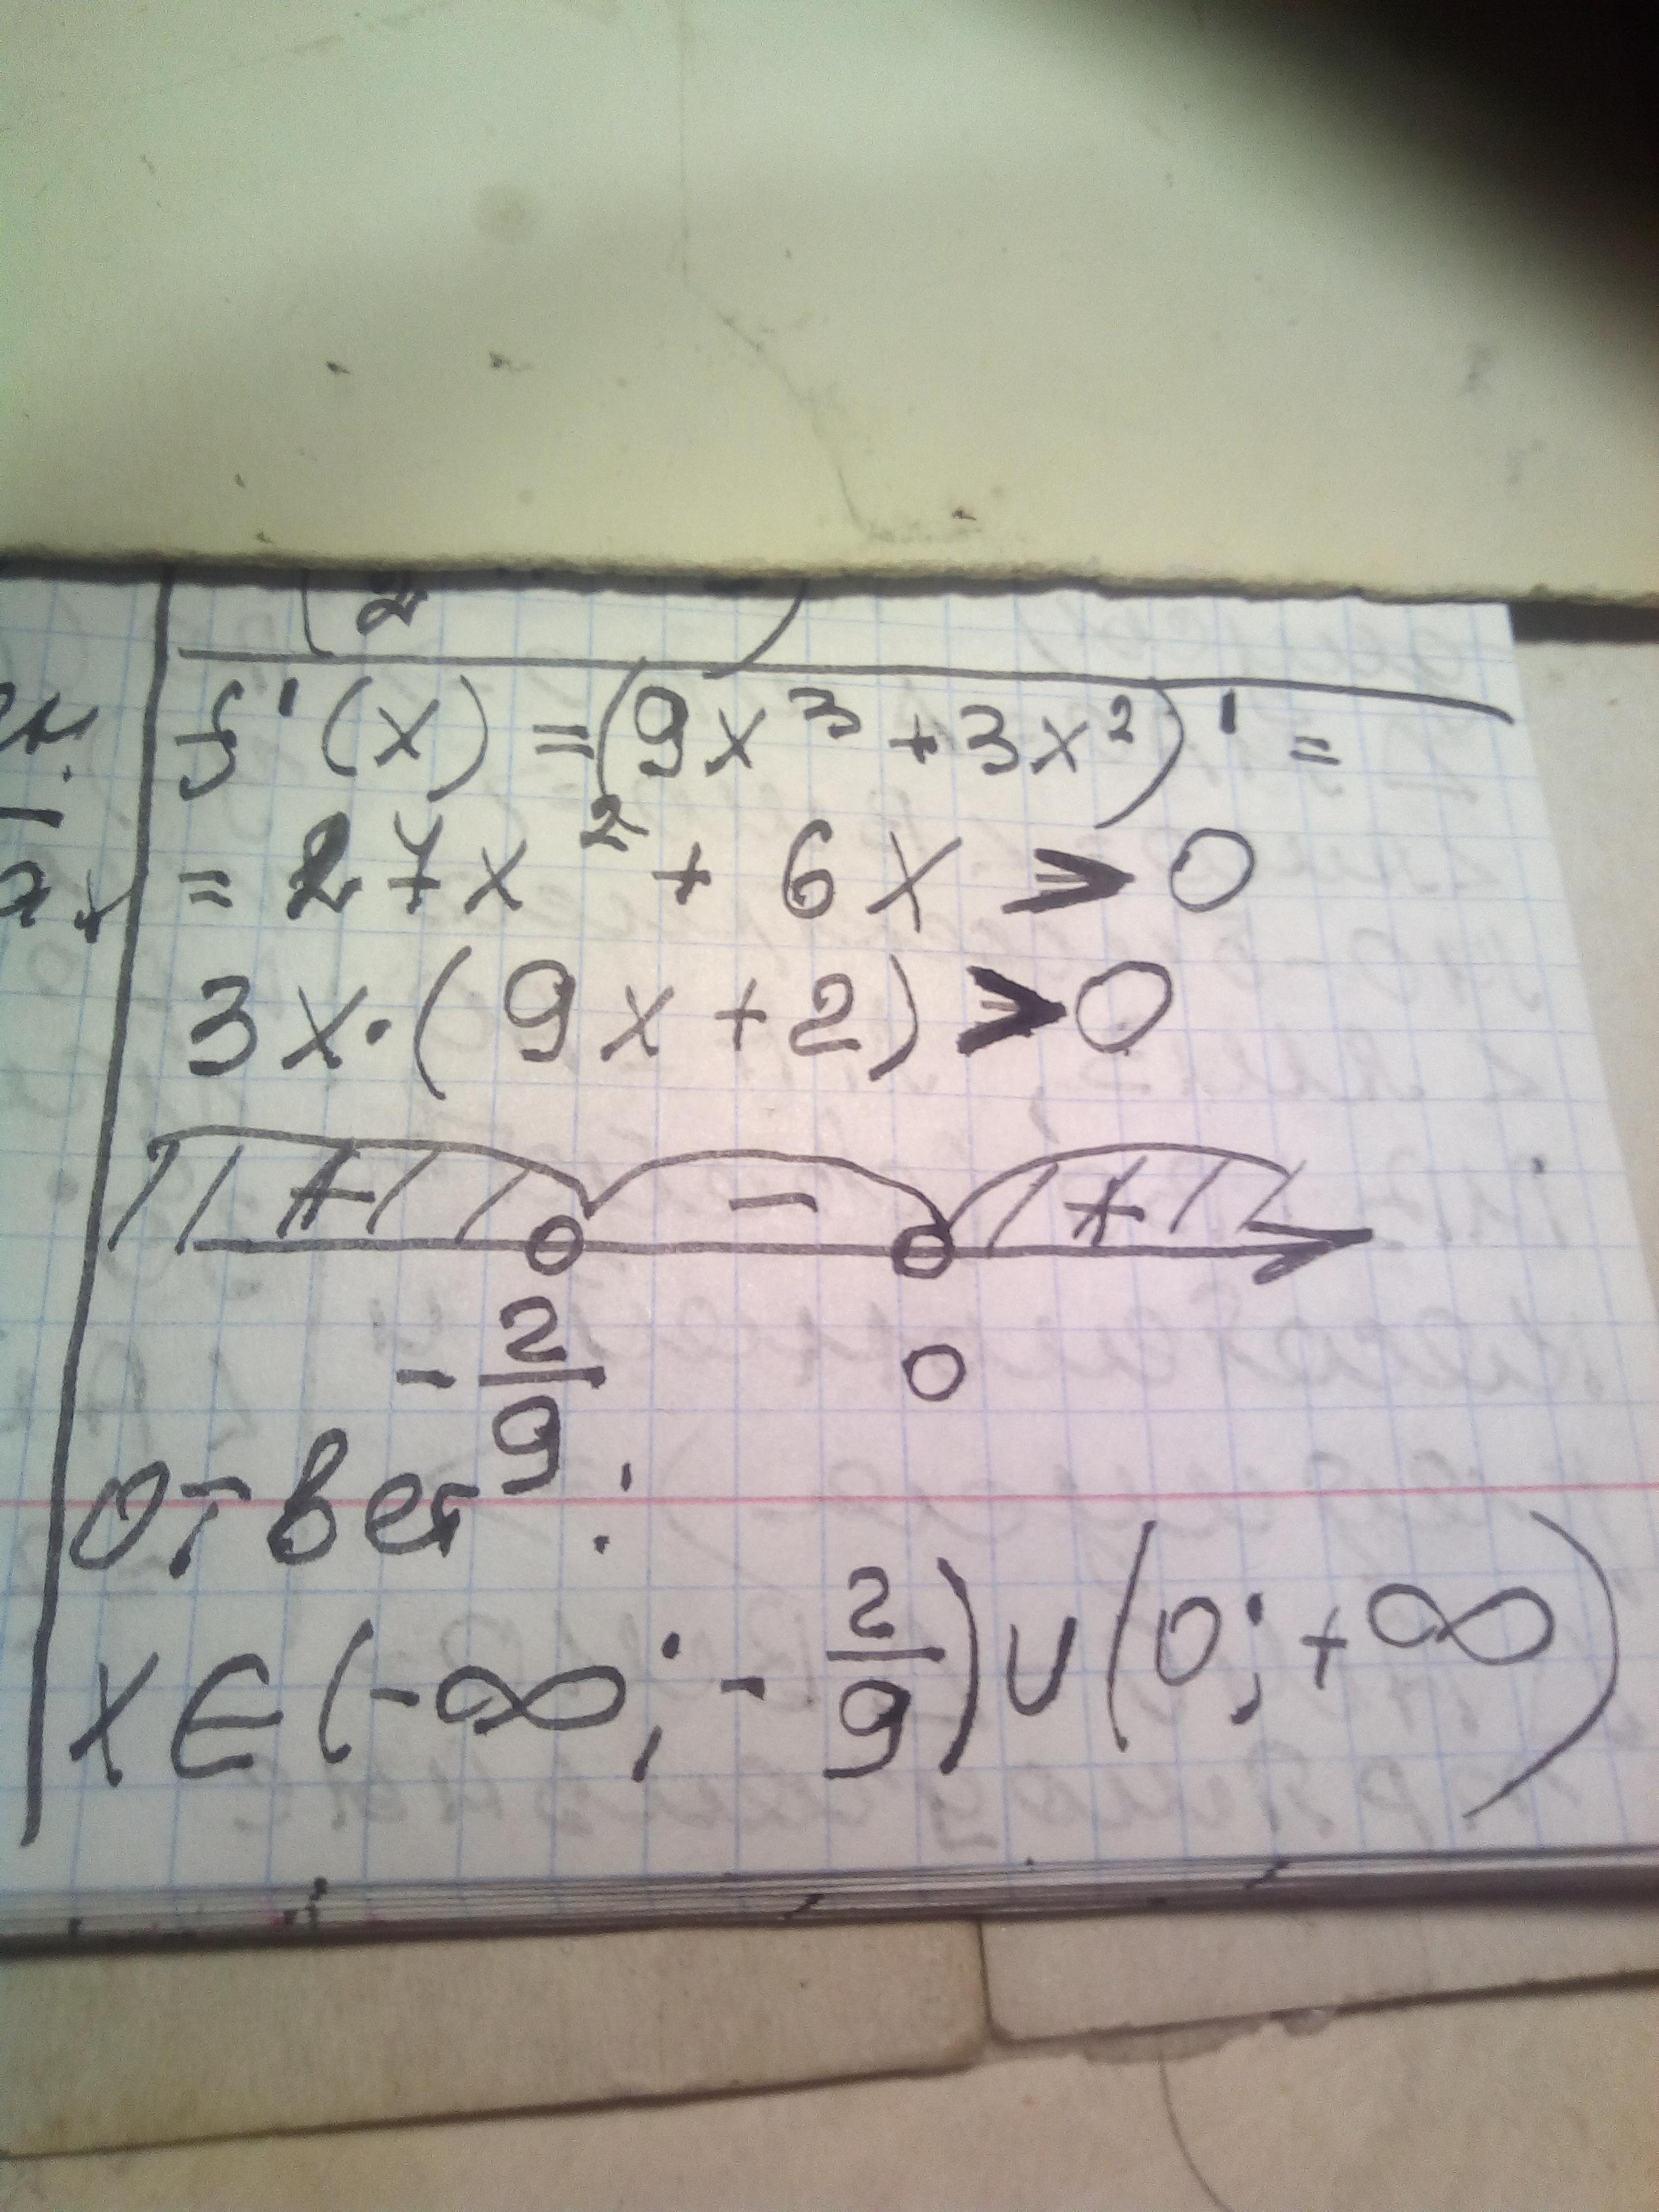 (2 )
f'(x) = (9x³ + 3x²)' =
= 27x² + 6x > 0
3x·(9x+2) > 0
+ − +
-2/9 0
Ответ:
x∈(-∞; -2/9)∪(0; +∞)